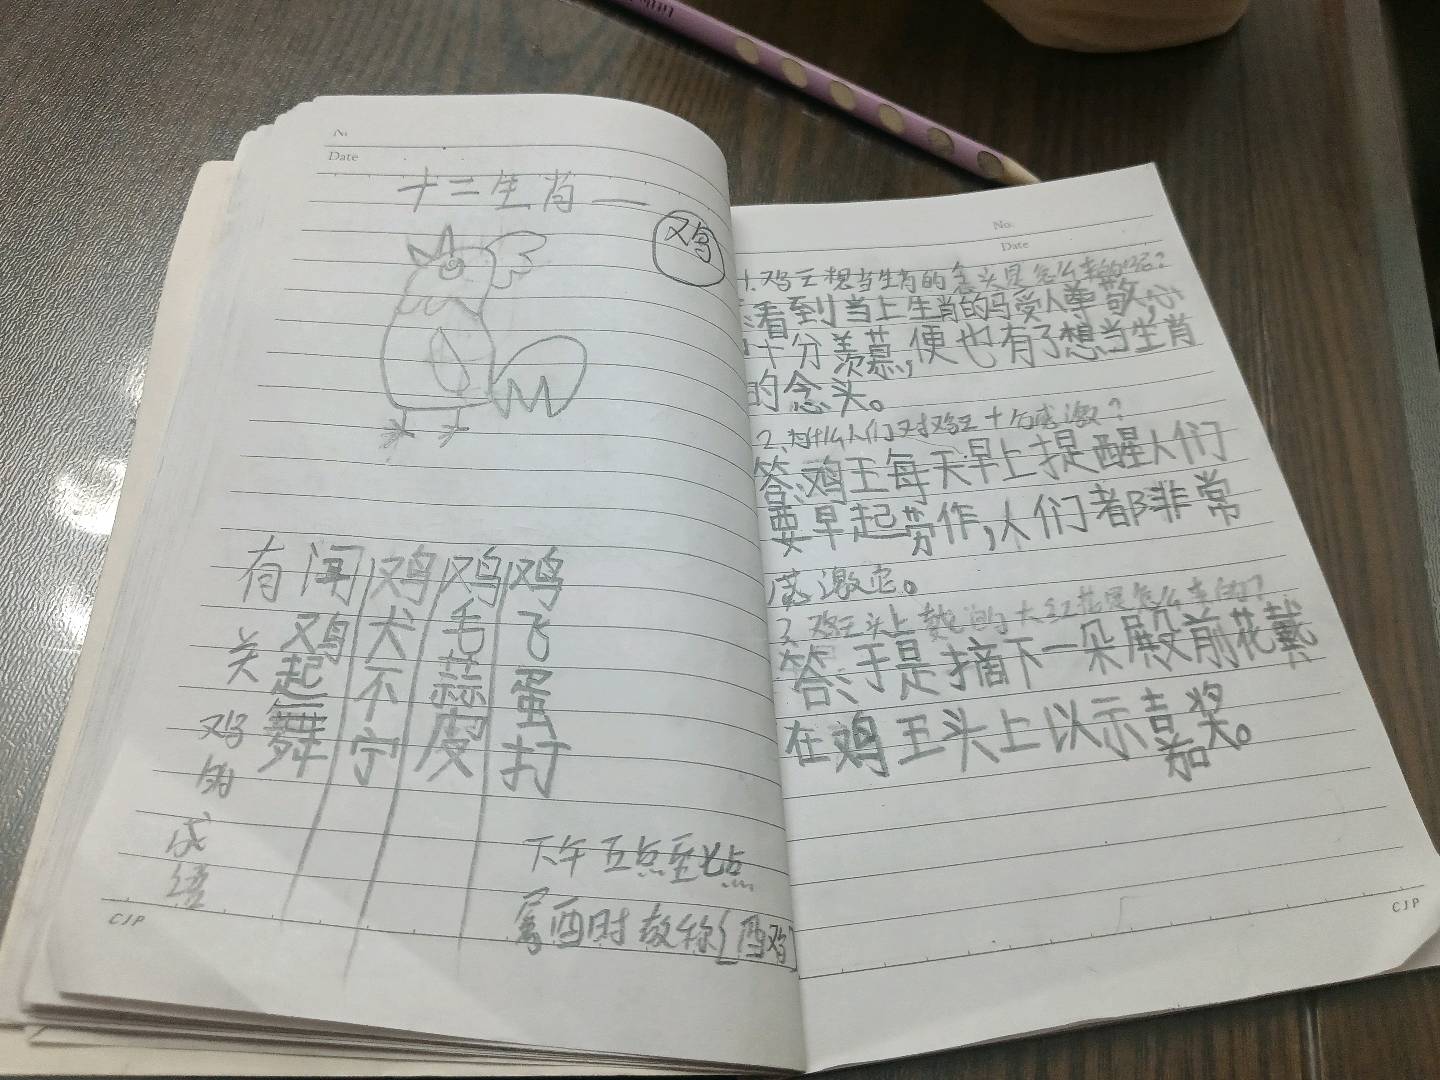 Date
十二生肖—
鸡
有关鸡的成语
闻鸡起舞
鸡犬不宁
鸡毛蒜皮
鸡飞蛋打
下午五点至七点
属酉时故称(酉鸡)
CJP
No.
Date
1.鸡王想当生肖的念头是怎么来的呢?
看到当上生肖的马受人尊敬,心
中十分羡慕,便也有了想当生肖
的念头。
2.为什么人们对鸡王十分感激?
答:鸡王每天早上提醒人们
要早起劳作,人们都非常
感激它。
3.鸡王头上戴的大红花是怎么来的?
答:于是摘下一朵殿前花戴
在鸡王头上以示嘉奖。
CJP